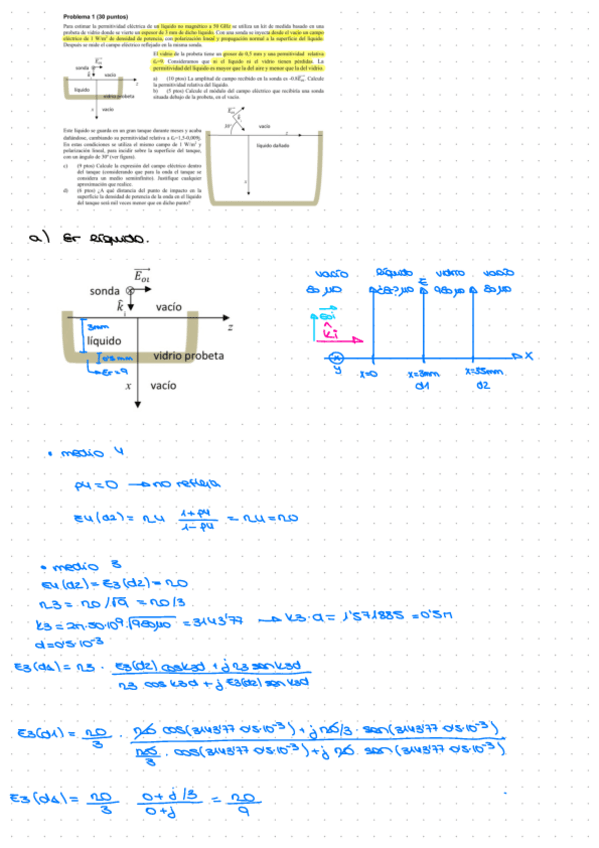 Problema 1 (30 puntos)
Para estimar la permitividad eléctrica de un líquido no magnético a 50 GHz se utiliza un kit de medida basado en una
probeta de vidrio donde se vierte un espesor de 3 mm de dicho líquido. Con una sonda se inyecta desde el vacío un campo
eléctrico de 1 W/m² de densidad de potencia, con polarización lineal y propagación normal a la superficie del líquido.
Después se mide el campo eléctrico reflejado en la misma sonda.
El vidrio de la probeta tiene un grosor de 0,5 mm y una permitividad relativa
εr=9. Consideremos que ni el líquido ni el vidrio tienen pérdidas. La
permitividad del líquido es mayor que la del aire y menor que la del vidrio.
a) (10 ptos) La amplitud de campo recibido en la sonda es
Calcule
la permitividad relativa del líquido.
b) (5 ptos) Calcule el módulo del campo eléctrico que recibiría una sonda
situada debajo de la probeta, en el vacío.
sonda
vacío
z
líquido
vidrio probeta
x
vacío
Este líquido se guarda en un gran tanque durante meses y acaba
dañándose, cambiando su permitividad relativa a
En estas condiciones se utiliza el mismo campo de 1 W/m² y
polarización lineal, para incidir sobre la superficie del tanque,
con un ángulo de 30º (ver figura).
c) (9 ptos) Calcule la expresión del campo eléctrico dentro
del tanque (considerando que para la onda el tanque se
considera un medio semiinfinito). Justifique cualquier
aproximación que realice.
d) (6 ptos) ¿A qué distancia del punto de impacto en la
superficie la densidad de potencia de la onda en el líquido
del tanque será mil veces menor que en dicho punto?
30º
vacío
z
líquido dañado
x
a) εr líquido.
E⃗oi
sonda
k̂
vacío
z
3mm
líquido
0'5mm
vidrio probeta
εr=9
x
vacío
vacío líquido vidrio vacío
ε0 μ0 ¿ε?μ0 9ε0μ0 ε0 μ0
E⃗oi
k̂i
y
x
x=0 x=3mm x=3'5mm
d1 d2
• medio 4
ρ4=0 → no refleja
Z4(d2) = η4 (1+ρ4)/(1-ρ4) = η4=η0
• medio 3
Z4(d2)=Z3(d2)=η0
η3 = η0/√9 = η0/3
k3 = 2π·50·10⁹·√9ε0μ0 = 3143'77 → k3·d = 1'571885 = 0'5π
d=0'5·10⁻³
Z3(d1) = η3 · (Z3(d2) cosk3d + j η3 senk3d)/(η3 cosk3d + j Z3(d2) senk3d)
Z3(d1) = η0/3 · (η0 cos(3143'77·0'5·10⁻³) + j η0/3 · sen(3143'77·0'5·10⁻³))/(η0/3 · cos(3143'77·0'5·10⁻³) + j η0 · sen(3143'77·0'5·10⁻³))
Z3(d1) = η0/3 (0+j/3)/(0+j) = η0/9